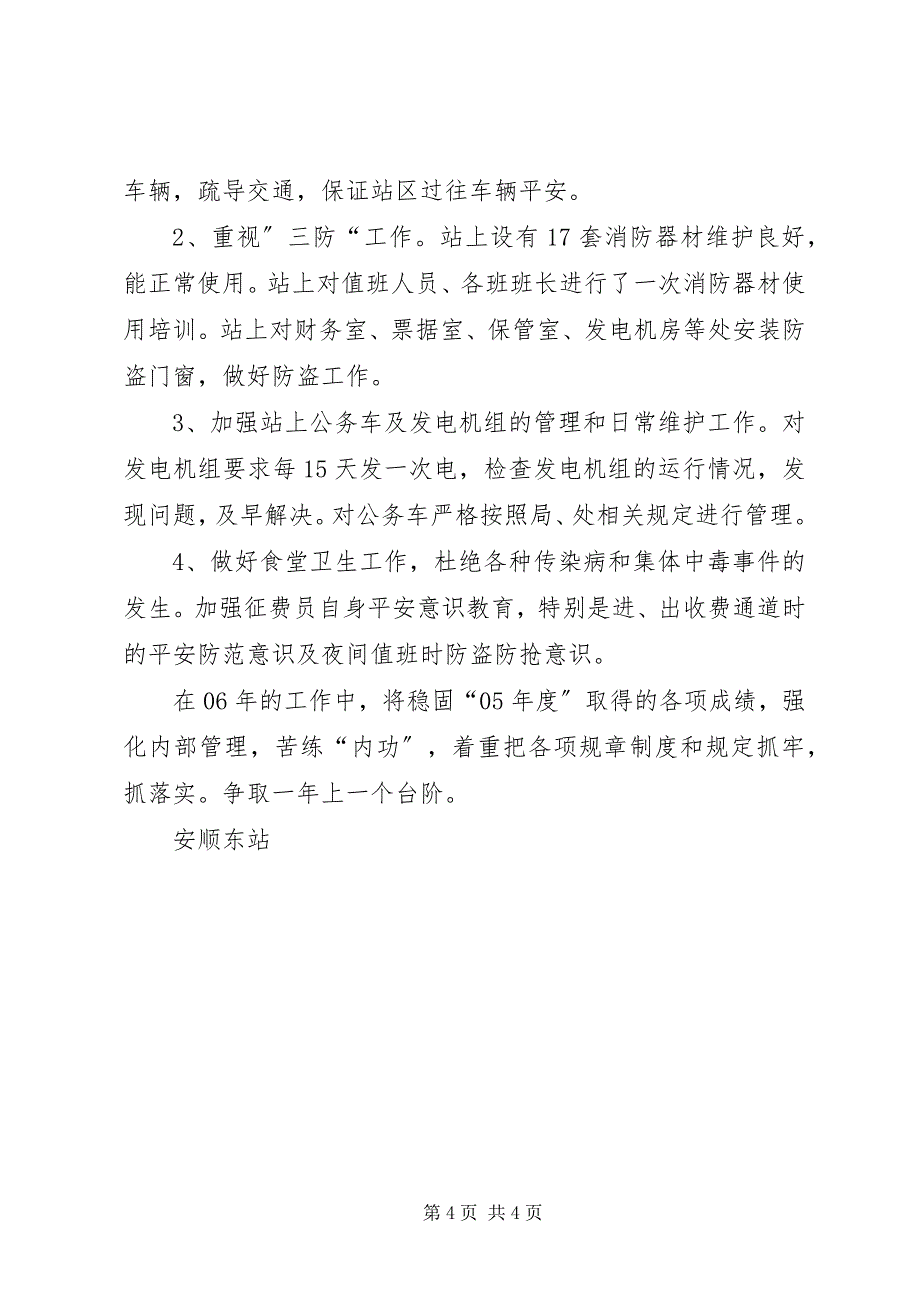 车辆，疏导交通，保证站区过往车辆平安。
2、重视〞三防“工作。站上设有 17 套消防器材维护良好，
能正常使用。站上对值班人员、各班班长进行了一次消防器材使
用培训。站上对财务室、票据室、保管室、发电机房等处安装防
盗门窗，做好防盗工作。
3、加强站上公务车及发电机组的管理和日常维护工作。对
发电机组要求每 15 天发一次电，检查发电机组的运行情况，发
现问题，及早解决。对公务车严格按照局、处相关规定进行管理。
4、做好食堂卫生工作，杜绝各种传染病和集体中毒事件的
发生。加强征费员自身平安意识教育，特别是进、出收费通道时
的平安防范意识及夜间值班时防盗防抢意识。
在 06 年的工作中，将稳固“05 年度〞取得的各项成绩，强
化内部管理，苦练“内功〞，着重把各项规章制度和规定抓牢，
抓落实。争取一年上一个台阶。
安顺东站
第 4 页 共 4 页